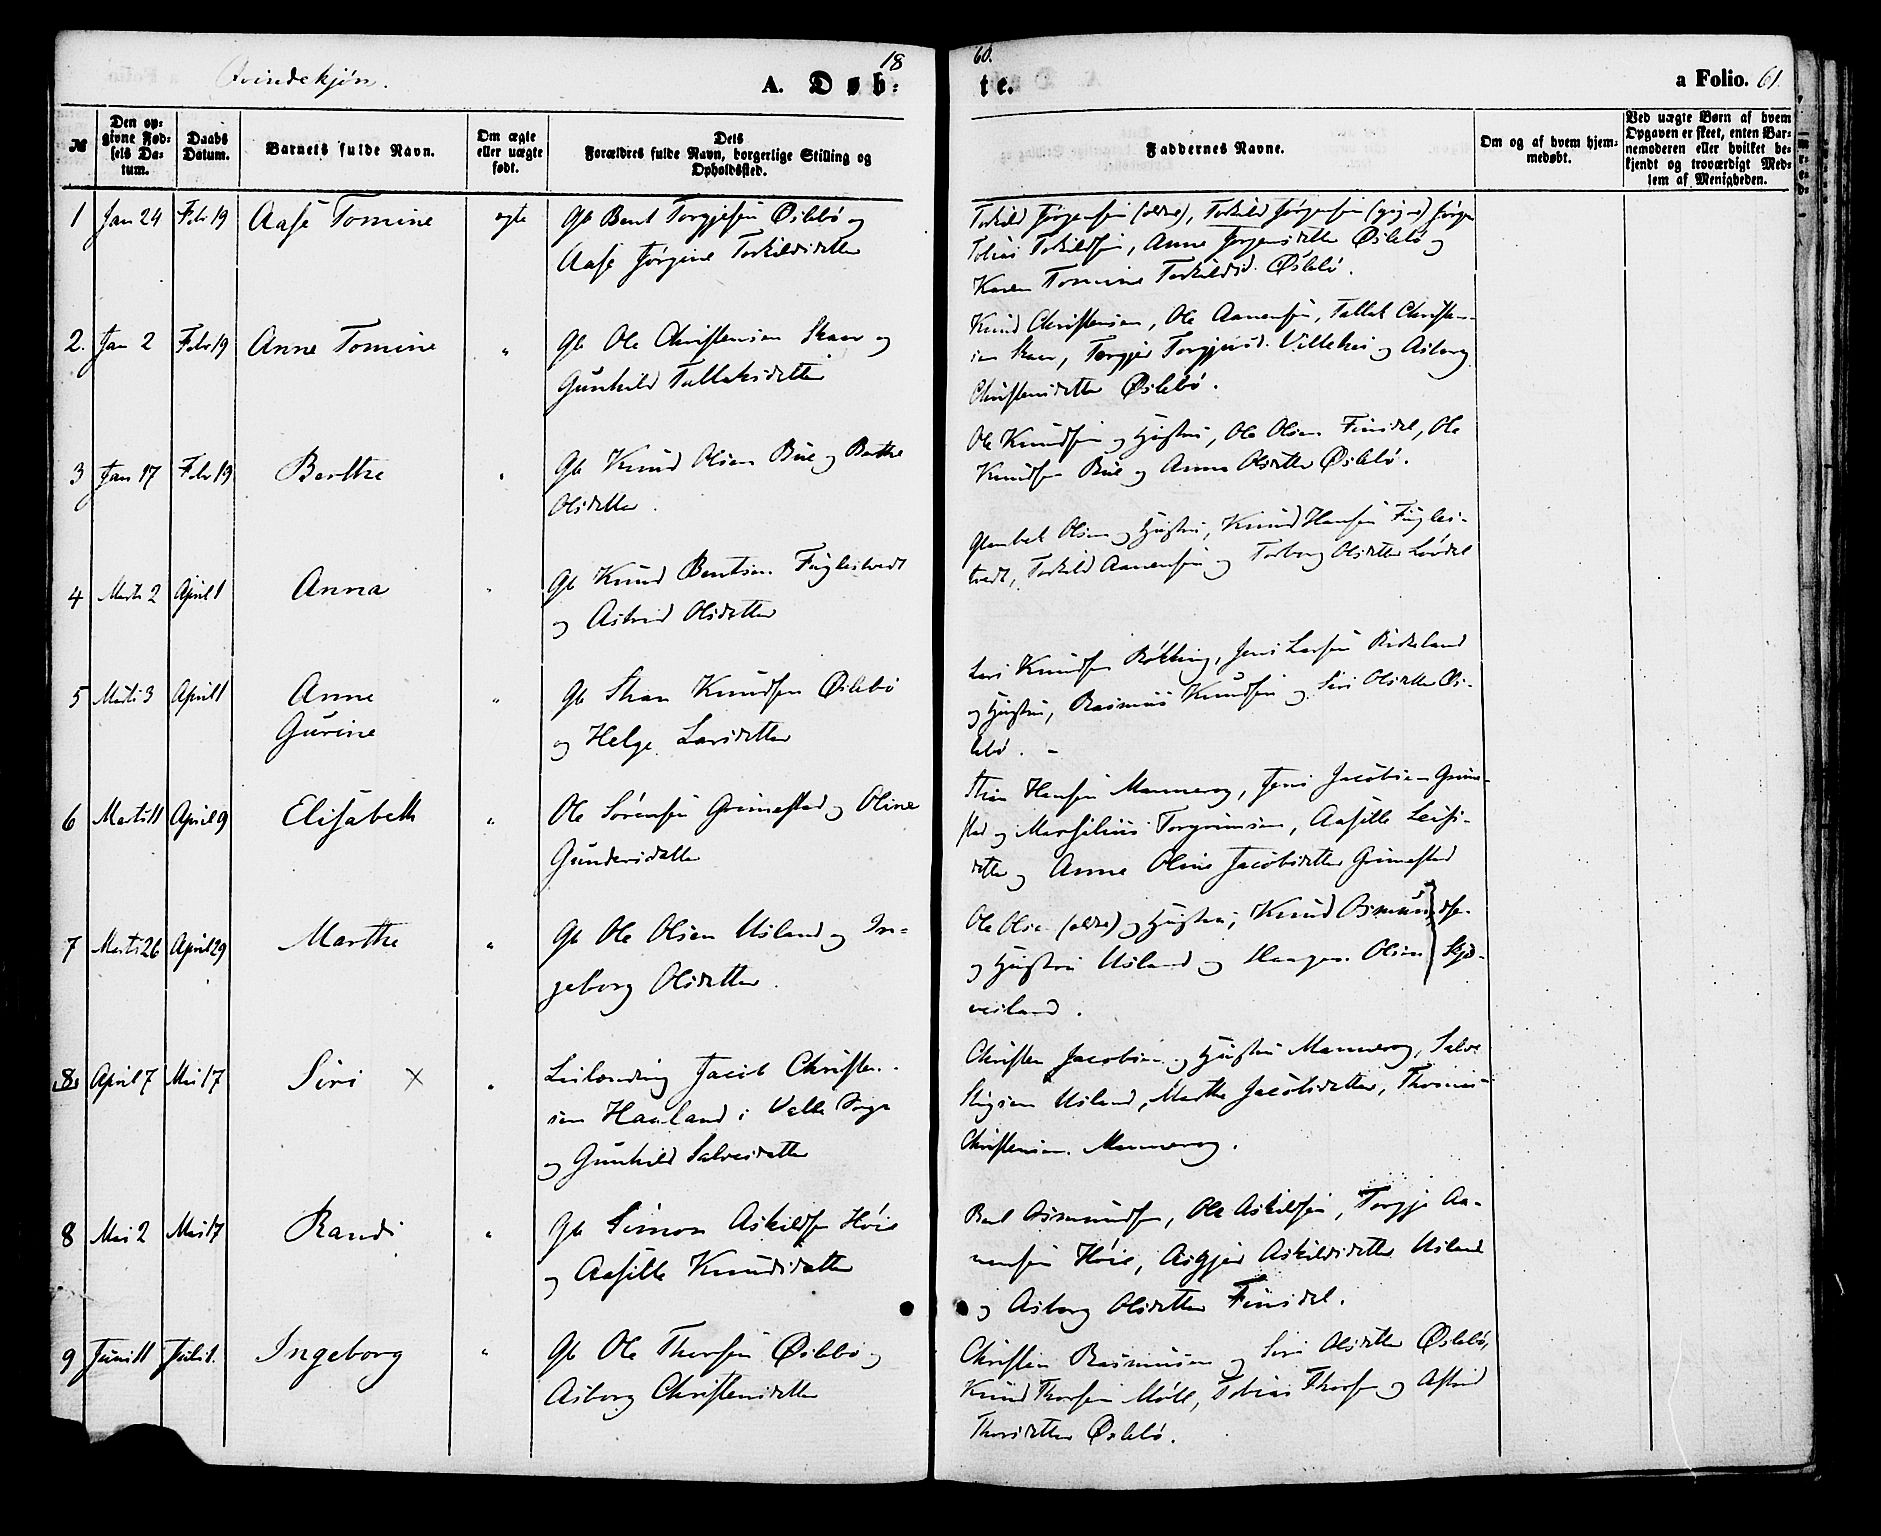 Qvindekjøn.
18
60.
A. Døb-
te.
a Folio. 61.
№
Den op-
givne Fød-
sels Da-
tum.
Daabs
Datum.
Barnets fulde Navn.
Om ægte
eller uægte
født.
Dets
Forældres fulde Navn, borgerlige Stilling og
Opholdssted.
Faddernes Navne.
Om og af hvem hjem-
medøbt.
Ved uægte Børn af hvem
Opgaven er skeet, enten Bar-
nemoderen eller hvilket be-
kjendt og troværdigt Med-
lem af Menigheden.
1 Jan 24 Febr 19 Aase Tomine ægte Gb Bent Torgjesen Øslebø og
Aase Jørgine Torkildsdatter
Torkild Jørgensen (ældre), Torkild Jørgensen (yngre) Jørgen
Tobias Torkildsen, Anne Jørgensdatter Øslebø og
Karen Tomine Torkildsd. Øslebø.
2. Jan 2 Febr 19 Anne Tomine " Gb Ole Christensen Skaar og
Gunhild Tallaksdatter
Knud Christensen, Ole Aanensen, Tallak Christen-
sen Skaar, Torgjer Torgjersd. og Asborg
Christensdatter Øslebø.
3 Jan 17 Febr 19 Berthe " Gb Knud Olsen Bue og Berthe
Olsdatter.
Ole Knudsen og Hustru, Ole Olsen Finsdal, Ole
Knudsen Bue og Anna Olsdatter Øslebø.
4 Marts 2 April 1 Anna " Gb Knud Bentsen Fuglestvedt
og Astrid Olsdatter
Olsen og Hustru, Knud Hansen Fugles-
tvedt, Torkild Aanensen og Torborg Olsdatter Løvdal
5 Marts 3 April 1 Anne
Gurine " Gb Stian Knudsen Øslebø
og Helge Larsdatter
Lars Knudsen, Jens Larsen Birkeland
og Hustru, Rasmus Knudsen og Siri Olsdatter Øs-
lebø. -
6 Marts 11 April 9 Elisabeth " Ole Sørensen Grimestad og Oline
Gundersdatter
Stian Hansen Mannerog, Jens Jacobsen Grime-
stad og Marselius Torgrimsen, Aasille Leifs-
datter og Anne Oline Jacobsdatter Grimestad
7 Marts 26 April 29 Marthe " Gb Ole Olsen Usland og In-
geborg Olsdatter.
Ole Olsen (ældre) og Hustru, Knud Osmundsen
og Hustru Usland og Olsen Skjø-
vesland.
8 April 7 Mai 17 Siri × " Leilænding Jacob Christen-
sen Haaland i Valle Sogn
og Gunhild Salvesdatter
Christen Jacobsen og Hustru Mannerog, Salve
Stigsen Usland, Marthe Jacobsdatter, Thomas
Christensen Mannerog.
8 Mai 2 Mai 17 Randi " Gb Simon Askildsen Høie
og Aasille Knudsdatter
Bent Osmundsen, Ole Askildsen, Torgje Aa-
nensen Høie, Asgjer Askildsdatter Usland
og Asborg Olsdatter Finsdal.
9 Juni 11 Juli 1. Ingeborg " Gb Ole Thorsen Øslebø og
Asborg Christensdatter
Christen Rasmussen og Siri Olsdatter Øslebø,
Knud Thorsen Møll, Tobias Thorsen og Astrid
Thorsdatter Øslebø.